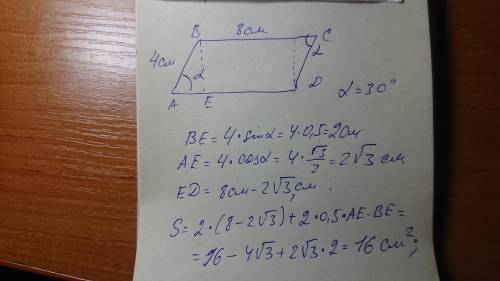 B 8см C
4см α α
A E D α=30°
BE=4·sinα=4·0,5=2см
AE=4·cosα=4·√3/2=2√3 см
ED=8см-2√3 см.
S=2·(8-2√3)+2·0,5·AE·BE=
=16-4√3+2√3·2=16 см²;